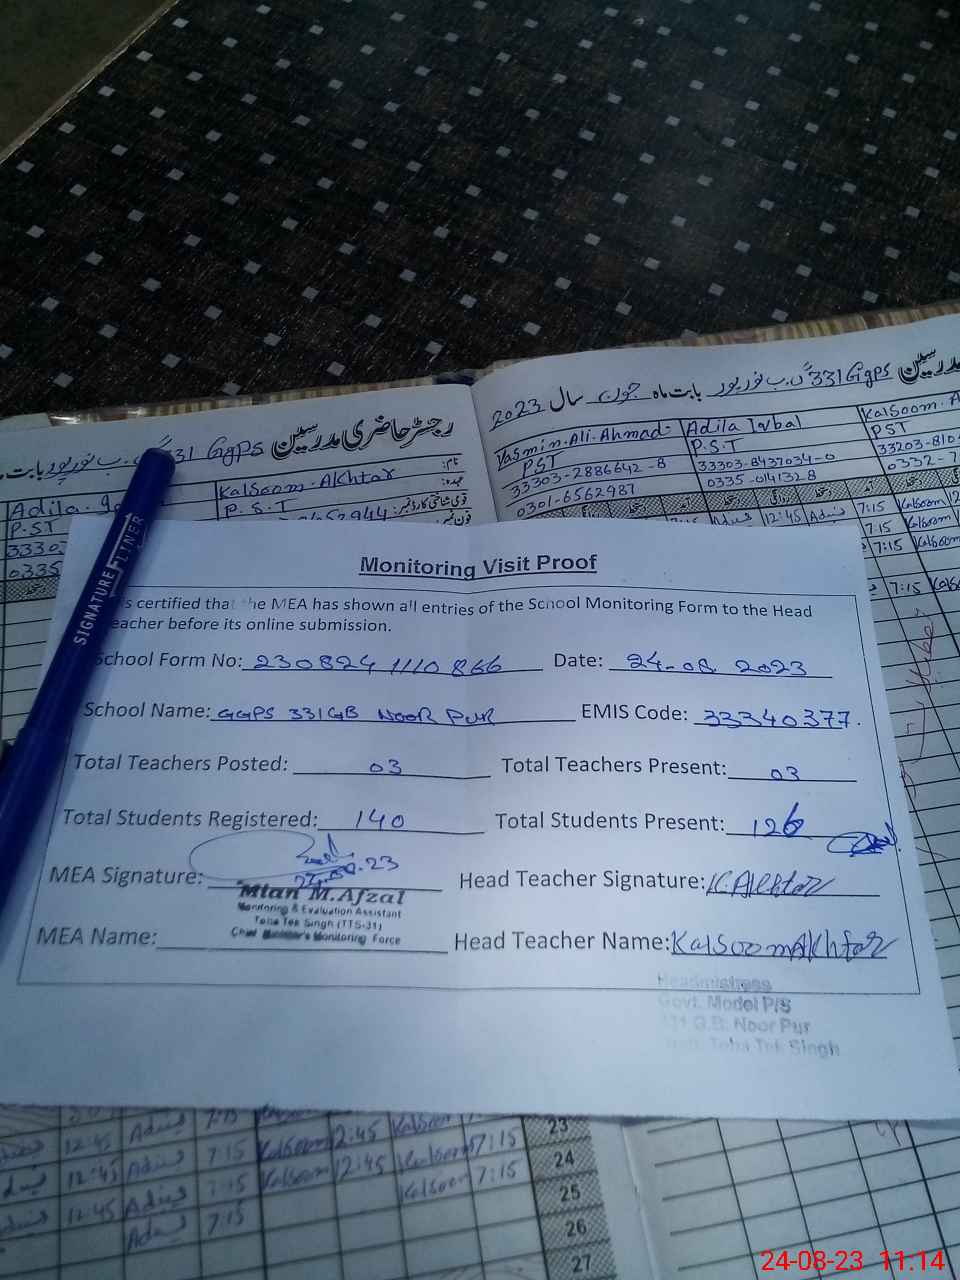 رجسٹر حاضری مدرسین Ggps 331 گ ب نور پور بابت
Adila
Kalsoom Akhtar
نام:
P.ST
P.S.T
عہدہ:
قومی شناختی کارڈ نمبر:
فون نمبر:
0335
مدرسین Ggps 331 گ ب نور پور بابت ماہ جون سال 2023
Yasmin Ali Ahmad
Adila Iqbal
Kalsoom A
PST
P.S.T
PST
33303-2886642-8
33303-8437034-0
33203-810
0301-6562987
0335-0141328
0332-7
12:45
7:15 Kalsoom
7:15 Kalsoom
7:15 Kalsoom
7:15
SIGNATURE LINER
Monitoring Visit Proof
is certified that the MEA has shown all entries of the School Monitoring Form to the Head
eacher before its online submission.
School Form No: 230824 1110 866 Date: 24-08 2023
School Name: GGPS 331GB NOOR PUR EMIS Code: 33340377.
Total Teachers Posted: 03 Total Teachers Present: 03
Total Students Registered: 140 Total Students Present: 126
MEA Signature: Head Teacher Signature: K.Akhtar
Mian M.Afzal
Monitoring & Evaluation Assistant
Toba Tek Singh (TTS-31)
Chief Minister's Monitoring Force
MEA Name: Head Teacher Name: Kalsoom Akhtar
Headmistress
Govt. Model P/S
331 G.B. Noor Pur
Toba Tek Singh
12:45 7:15 Kalsoom 12:45 Kalsoom 7:15 23
12:45 7:15 Kalsoom 12:45 Kalsoom 7:15 24
12:45 7:15 Kalsoom 7:15 25
7:15 26
27
24-08-23 11:14